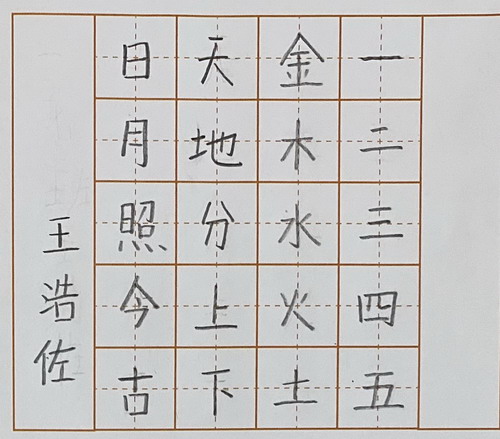 一二三四五
金木水火土
天地分上下
日月照今古
王浩佐